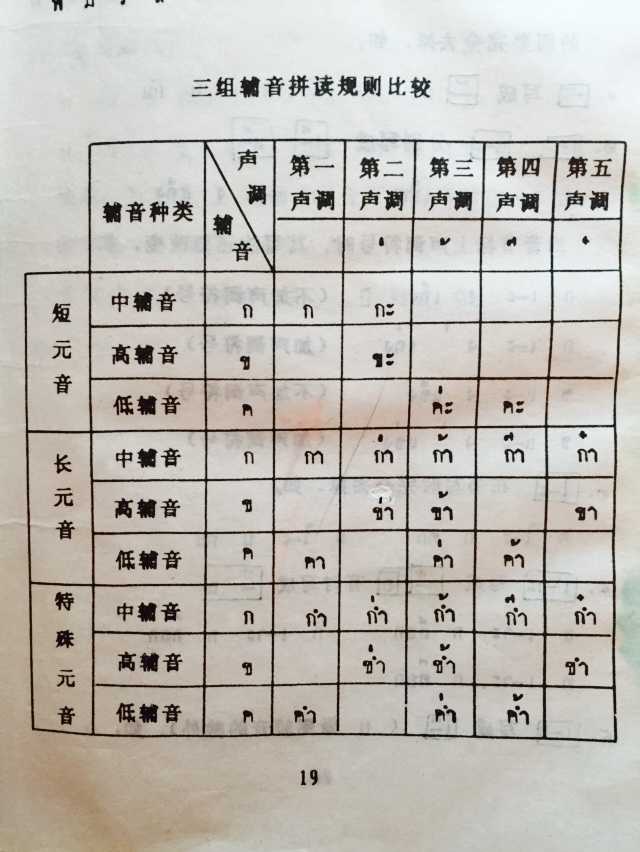 三组辅音拼读规则比较
辅音种类 声调 辅音 第一声调 第二声调 第三声调 第四声调 第五声调
่ ้ ๊ ๋
短元音
中辅音 ก ก กะ
高辅音 ข ขะ
低辅音 ค ค่ะ คะ
长元音
中辅音 ก กา ก่า ก้า ก๊า ก๋า
高辅音 ข ข่า ข้า ขา
低辅音 ค คา ค่า ค้า
特殊元音
中辅音 ก กำ ก่ำ ก้ำ ก๊ำ ก๋ำ
高辅音 ข ข่ำ ข้ำ ขำ
低辅音 ค คำ ค่ำ ค้ำ
19